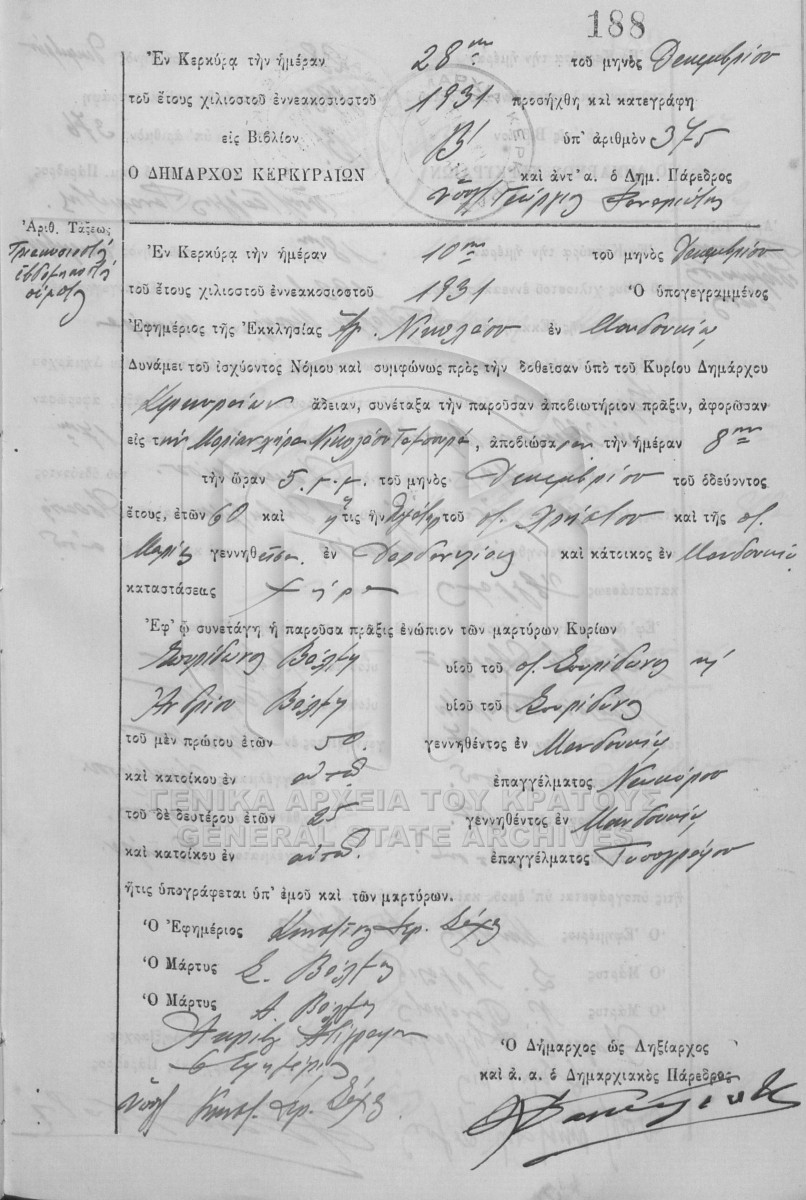 188
Ἐν Κερκύρᾳ τὴν ἡμέραν 28ην τοῦ μηνὸς Δεκεμβρίου
τοῦ ἔτους χιλιοστοῦ ἐννεακοσιοστοῦ 1931 προσήχθη καὶ κατεγράφη
εἰς Βιβλίον Β' ὑπ' ἀριθμὸν 375
Ο ΔΗΜΑΡΧΟΣ ΚΕΡΚΥΡΑΙΩΝ καὶ ἀντ' α. ὁ Δημ. Πάρεδρος
Γεώργιος
Ἀριθ. Τάξεως
Τριακοσιοστή
ἑβδομηκοστή
πέμπτη
Ἐν Κερκύρᾳ τὴν ἡμέραν 10ην τοῦ μηνὸς Δεκεμβρίου
τοῦ ἔτους χιλιοστοῦ ἐννεακοσιοστοῦ 1931 Ὁ ὑπογεγραμμένος
Ἐφημέριος τῆς Ἐκκλησίας Ἁγ. Νικολάου ἐν Μανδουκίῳ
Δυνάμει τοῦ ἰσχύοντος Νόμου καὶ συμφώνως πρὸς τὴν δοθεῖσαν ὑπὸ τοῦ Κυρίου Δημάρχου
Κερκυραίων ἄδειαν, συνέταξα τὴν παροῦσαν ἀποβιωτήριον πρᾶξιν, ἀφορῶσαν
εἰς τὴν Μαρίαν χήρα Νικολάου, ἀποβιώσασαν τὴν ἡμέραν 8ην
τὴν ὥραν 5 μ.μ. τοῦ μηνὸς Δεκεμβρίου τοῦ ὁδεύοντος
ἔτους, ἐτῶν 60 καὶ ἥτις ἦν θυγάτηρ τοῦ π. Χρήστου καὶ τῆς π.
Μαρίας γεννηθεῖσα ἐν Δαρδανελίοις καὶ κάτοικος ἐν Μανδουκίῳ
καταστάσεως χήρα
Ἐφ' ᾧ συνετάγη ἡ παροῦσα πρᾶξις ἐνώπιον τῶν μαρτύρων Κυρίων
Σπυρίδωνος Βόλτη υἱοῦ τοῦ π. Σπυρίδωνος κ
Ἀνδρέου Βόλτη υἱοῦ τοῦ Σπυρίδωνος
τοῦ μὲν πρώτου ἐτῶν 50 γεννηθέντος ἐν Μανδουκίῳ
καὶ κατοίκου ἐν αὐτῷ ἐπαγγέλματος Νεωκόρου
ΓΕΝΙΚΑ ΑΡΧΕΙΑ ΤΟΥ ΚΡΑΤΟΥΣ
τοῦ δὲ δευτέρου ἐτῶν 25 γεννηθέντος ἐν Μανδουκίῳ
GENERAL STATE ARCHIVES
καὶ κατοίκου ἐν αὐτῷ ἐπαγγέλματος Τυπογράφου
ἥτις ὑπογράφεται ὑπ' ἐμοῦ καὶ τῶν μαρτύρων.
Ὁ Ἐφημέριος
Ὁ Μάρτυς Σ. Βόλτης
Ὁ Μάρτυς Α. Βόλτης
Ἀκριβὲς Ἀντίγραφον
Ὁ Ἐφημέριος
Ὁ Δήμαρχος ὡς Ληξίαρχος
καὶ ἀ. α. ὁ Δημαρχιακὸς Πάρεδρος